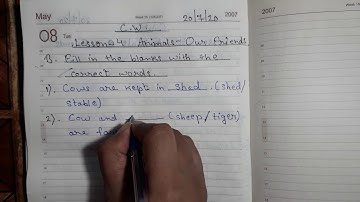 May
2007
2007
08
Tue
C.W
20/7/20
Lesson 4 Animals - Our Friends
B. Fill in the blanks with the
correct words.
1). Cows are kept in shed. (shed/
stable)
2). Cow and (sheep/tiger)
are